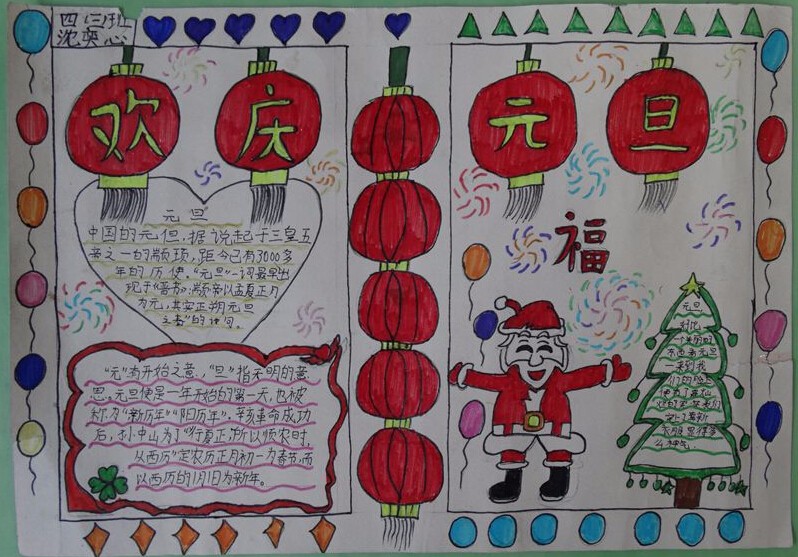 四(三)班
沈奕心
欢庆元旦
福
元旦
中国的元但,据说起于三皇五
帝之一的颛顼,距今已有3000多
年的历使,"元旦"一词最早出
现于《晋书》:颛帝以孟夏正月
为元,其实正朔元旦
之春"的诗句。
"元"有开始之意,"旦"指天明的意
思。元旦便是一年开始的第一天,也被
称为"新历年""阳历年"。辛亥革命成功
后,孙中山为了"行夏正,所以顺农时,
从西历"定农历正月初一为春节,而
以西历的1月1日为新年。
元旦
一个美丽的
一来到我
们的
衣服
么神气